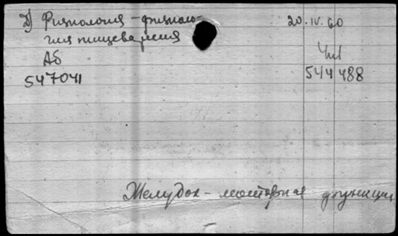 2) Физиология - физиоло-
гия пищеварения
АБ
547041
20.IV.60
Чил
544488
Желудок - моторная функция